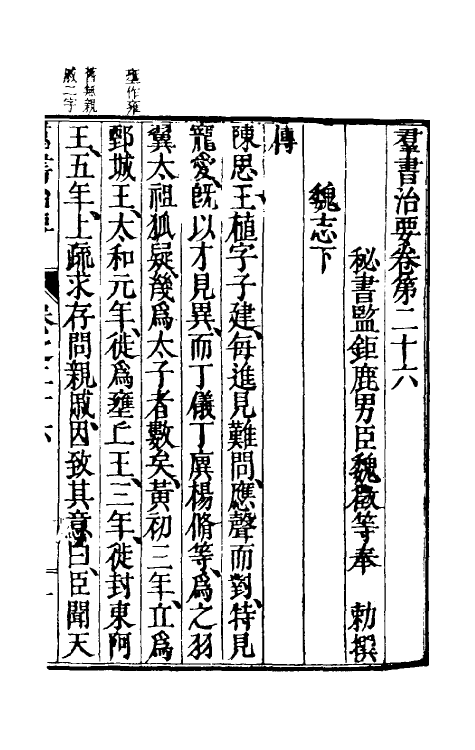 羣書治要卷第二十六
秘書監鉅鹿男臣魏徵等奉 勅撰
魏志下
傳
陳思王植字子建每進見難問應聲而對特見
寵愛既以才見異而丁儀丁廙楊脩等爲之羽
翼太祖狐疑幾爲太子者數矣黃初二年立爲
鄄城王太和元年徙爲壅丘王三年徙封東阿
王五年上疏求存問親戚因致其意曰臣聞天
壅作雍
舊無親
戚二字